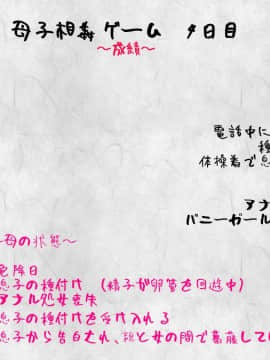 母子相姦ゲーム 夕日目
～成績～
電話中に
体操着で息
アナ
バニーガール
～母の状態～
危険日
息子の種付け （精子が卵管を回遊中）
アナル処女喪失
息子の種付けを受け入れる
息子から告白され、親と女の間で葛藤してい